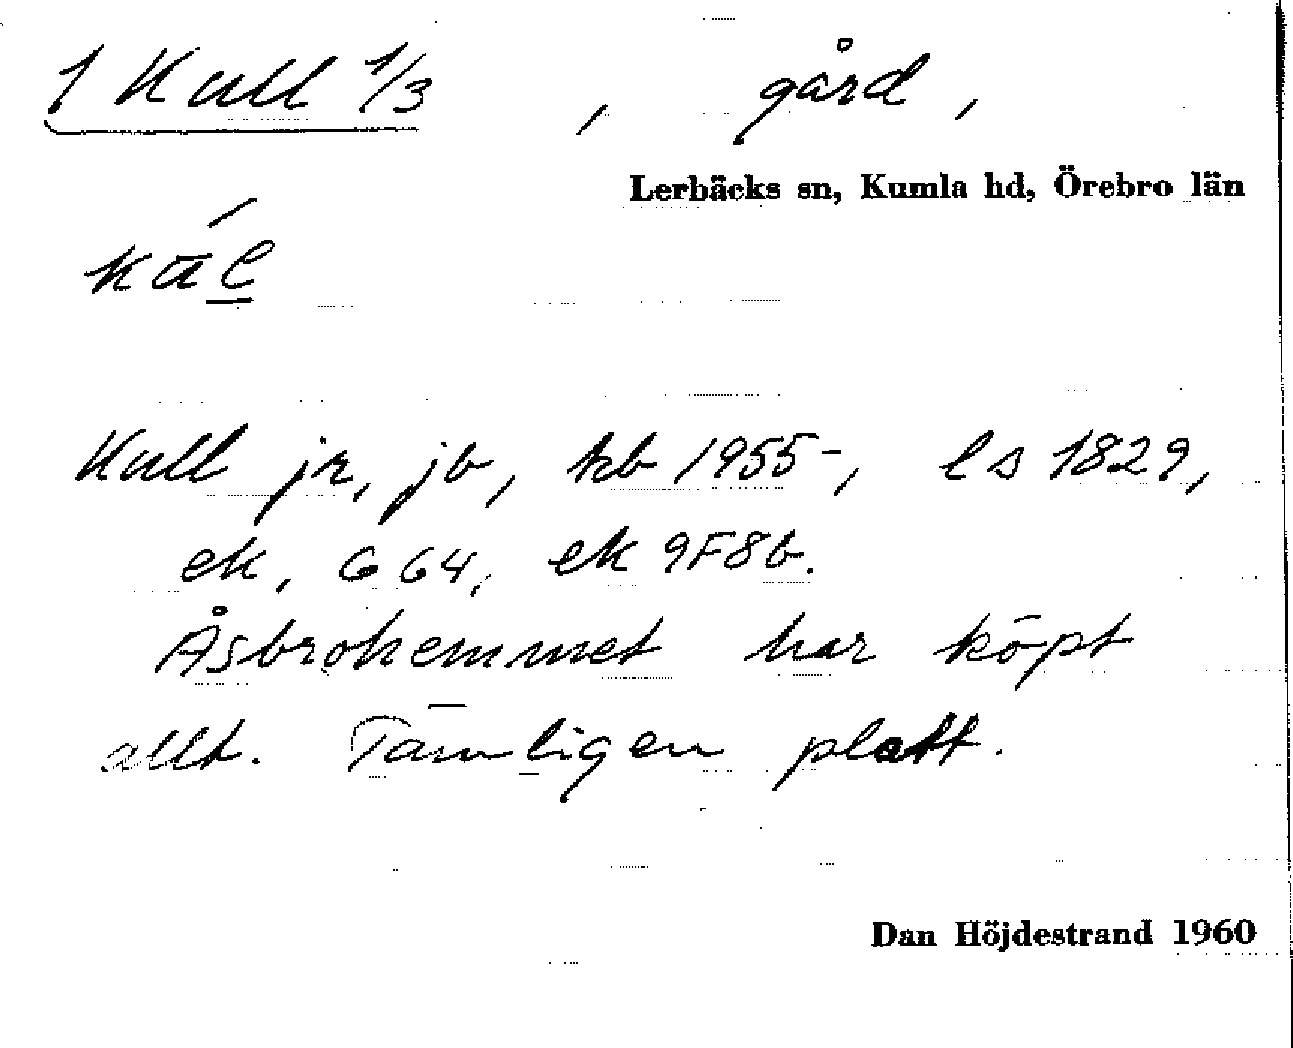 1 Kull 1/3 , gård ,
Lerbäcks sn, Kumla hd, Örebro län
Kull jr, jb, kb 1955-, ls 1829,
ek, G 64, ek 9F8b.
Åsbrohemmet har köpt
allt. Tämligen platt.
Dan Höjdestrand 1960